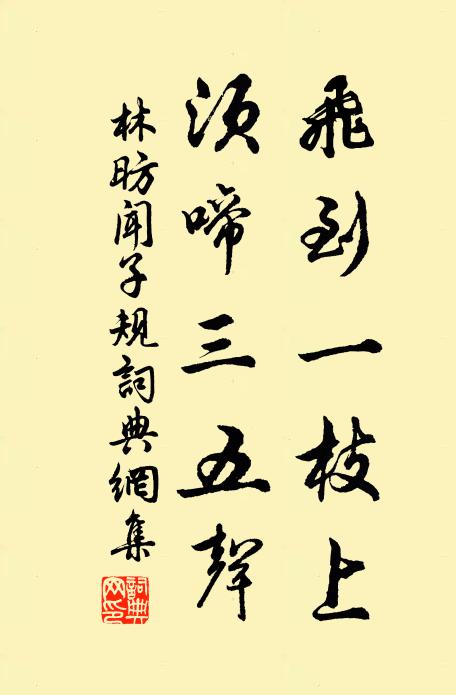 飛到一枝上
須啼三五聲
林昉聞子規詞典網集
詞典网印